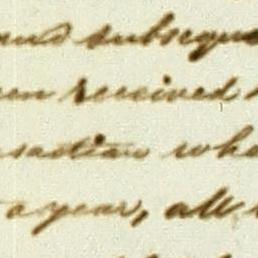 and subseque
en received
saction whe
a year, all